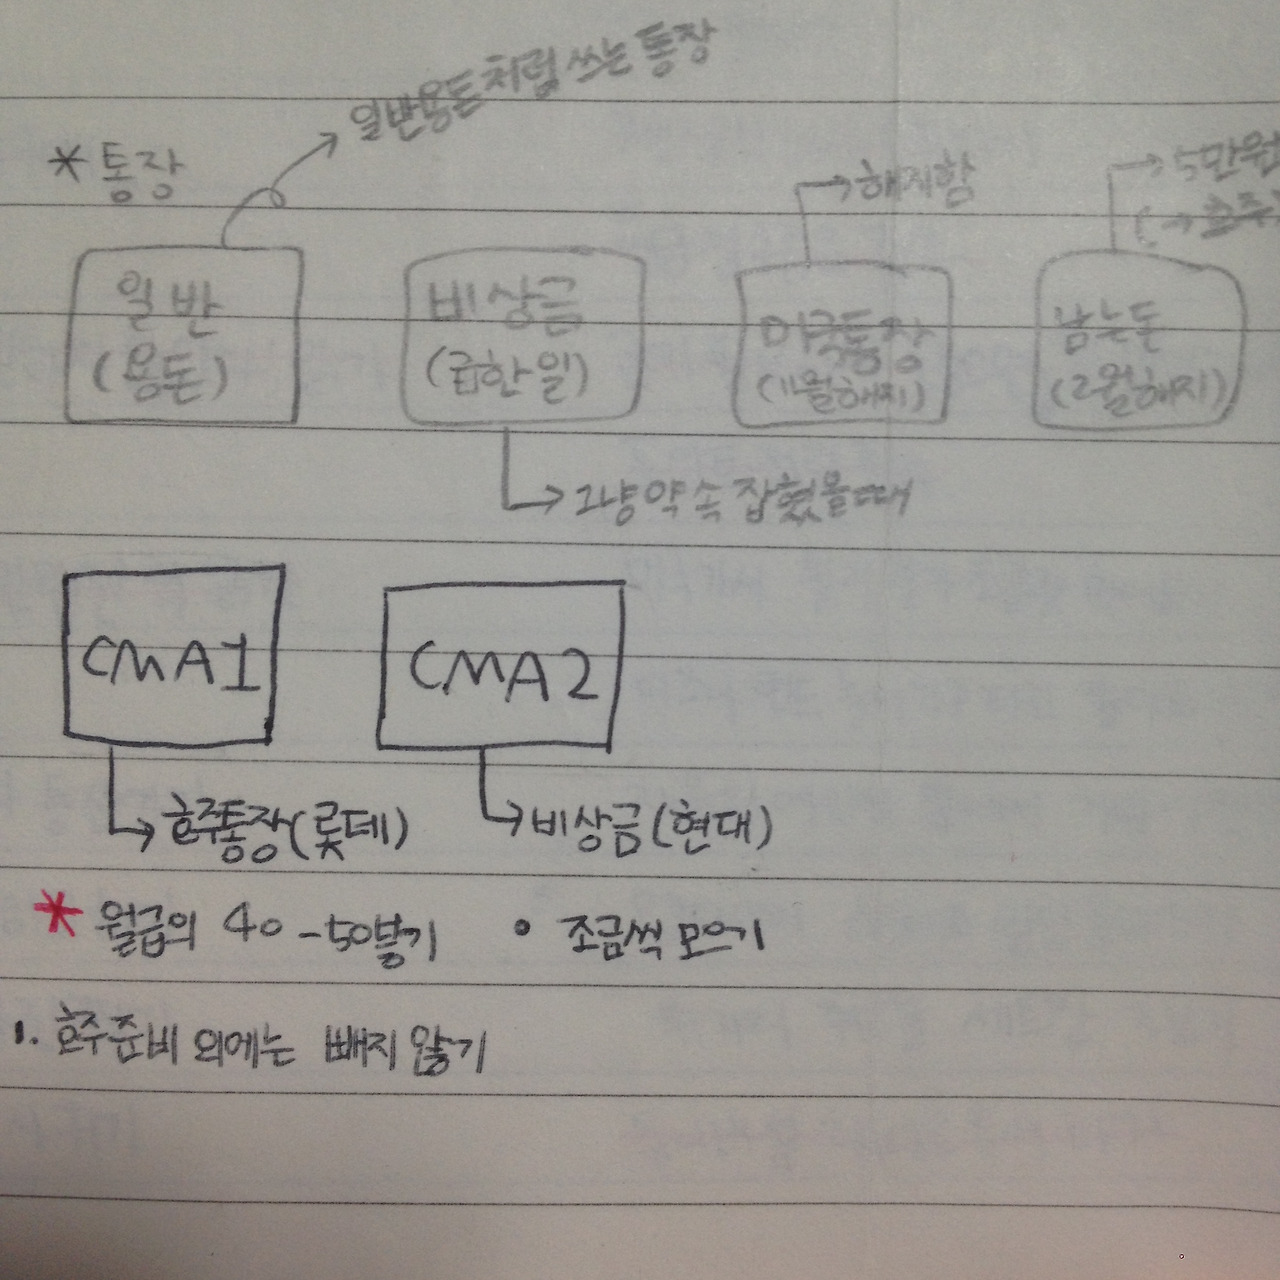 일반용돈처럼 쓰는 통장
* 통장
→ 해지함
→ 5만원
(→ 호주
일반
(용돈)
비상금
(급한일)
미국통장
(11월해지)
남는돈
(2월해지)
→ 그냥 약속 잡혔을때
CMA1
CMA2
→ 호주통장(롯데)
→ 비상금(현대)
* 월급의 40-50붙기 • 조금씩 모으기
1. 호주준비 외에는 빼지 않기